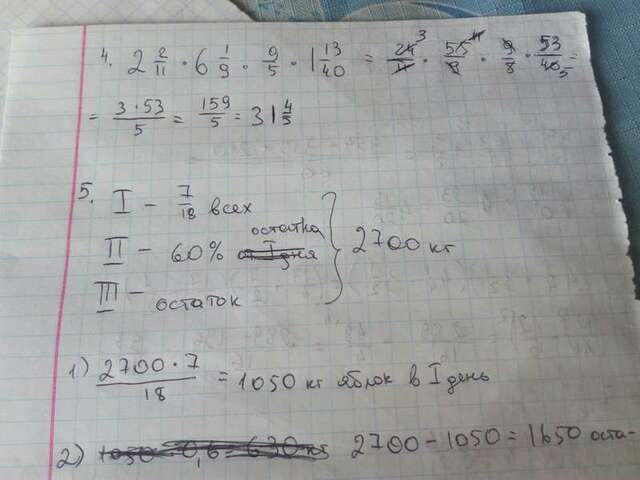 4. 2 2/11 · 6 1/9 · 9/5 · 1 13/40 = 24/11 · 55/9 · 9/8 · 53/40 =
= 3·53/5 = 159/5 = 31 4/5
5. I – 7/18 всех
II – 60% остатка от I дня
III – остаток
2700 кг
1) 2700·7/18 = 1050 кг яблок в I день
2) 1050 · 0,6 = 630 кг 2700 – 1050 = 1650 оста-